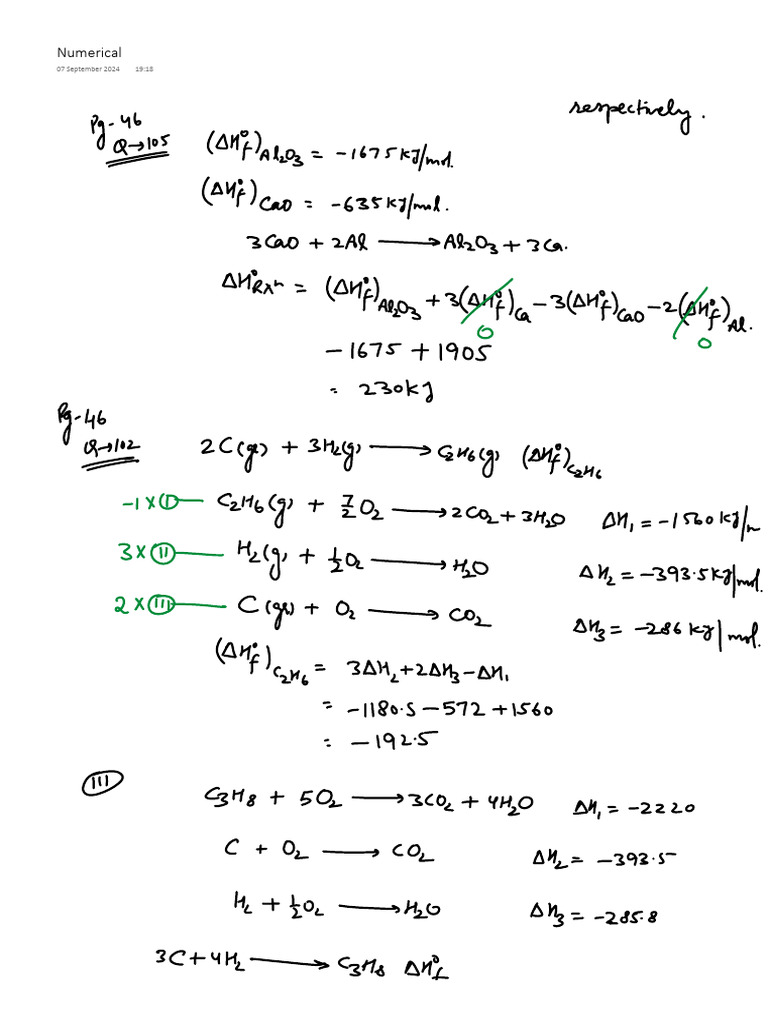 Numerical
07 September 2024 19:18
respectively.
Pg-46
Q→105
(ΔH°f)Al2O3 = -1675 KJ/mol.
(ΔH°f)CaO = -635 KJ/mol.
3CaO + 2Al ⟶ Al2O3 + 3Ca.
ΔH°Rxn = (ΔH°f)Al2O3 + 3(ΔH°f)Ca - 3(ΔH°f)CaO - 2(ΔH°f)Al.
0 0
-1675 + 1905
= 230KJ
Pg-46
Q→102
2C(gr) + 3H2(g) ⟶ C2H6(g) (ΔH°f)C2H6
-1 × I C2H6(g) + 7/2 O2 ⟶ 2CO2 + 3H2O ΔH1 = -1560 KJ/m
3 × II H2(g) + 1/2 O2 ⟶ H2O ΔH2 = -393.5 KJ/mol.
2 × III C(gr) + O2 ⟶ CO2 ΔH3 = -286 KJ/mol.
(ΔH°f)C2H6 = 3ΔH2 + 2ΔH3 - ΔH1
= -1180.5 - 572 + 1560
= -192.5
III
C3H8 + 5O2 ⟶ 3CO2 + 4H2O ΔH1 = -2220
C + O2 ⟶ CO2 ΔH2 = -393.5
H2 + 1/2 O2 ⟶ H2O ΔH3 = -285.8
3C + 4H2 ⟶ C3H8 ΔH°f